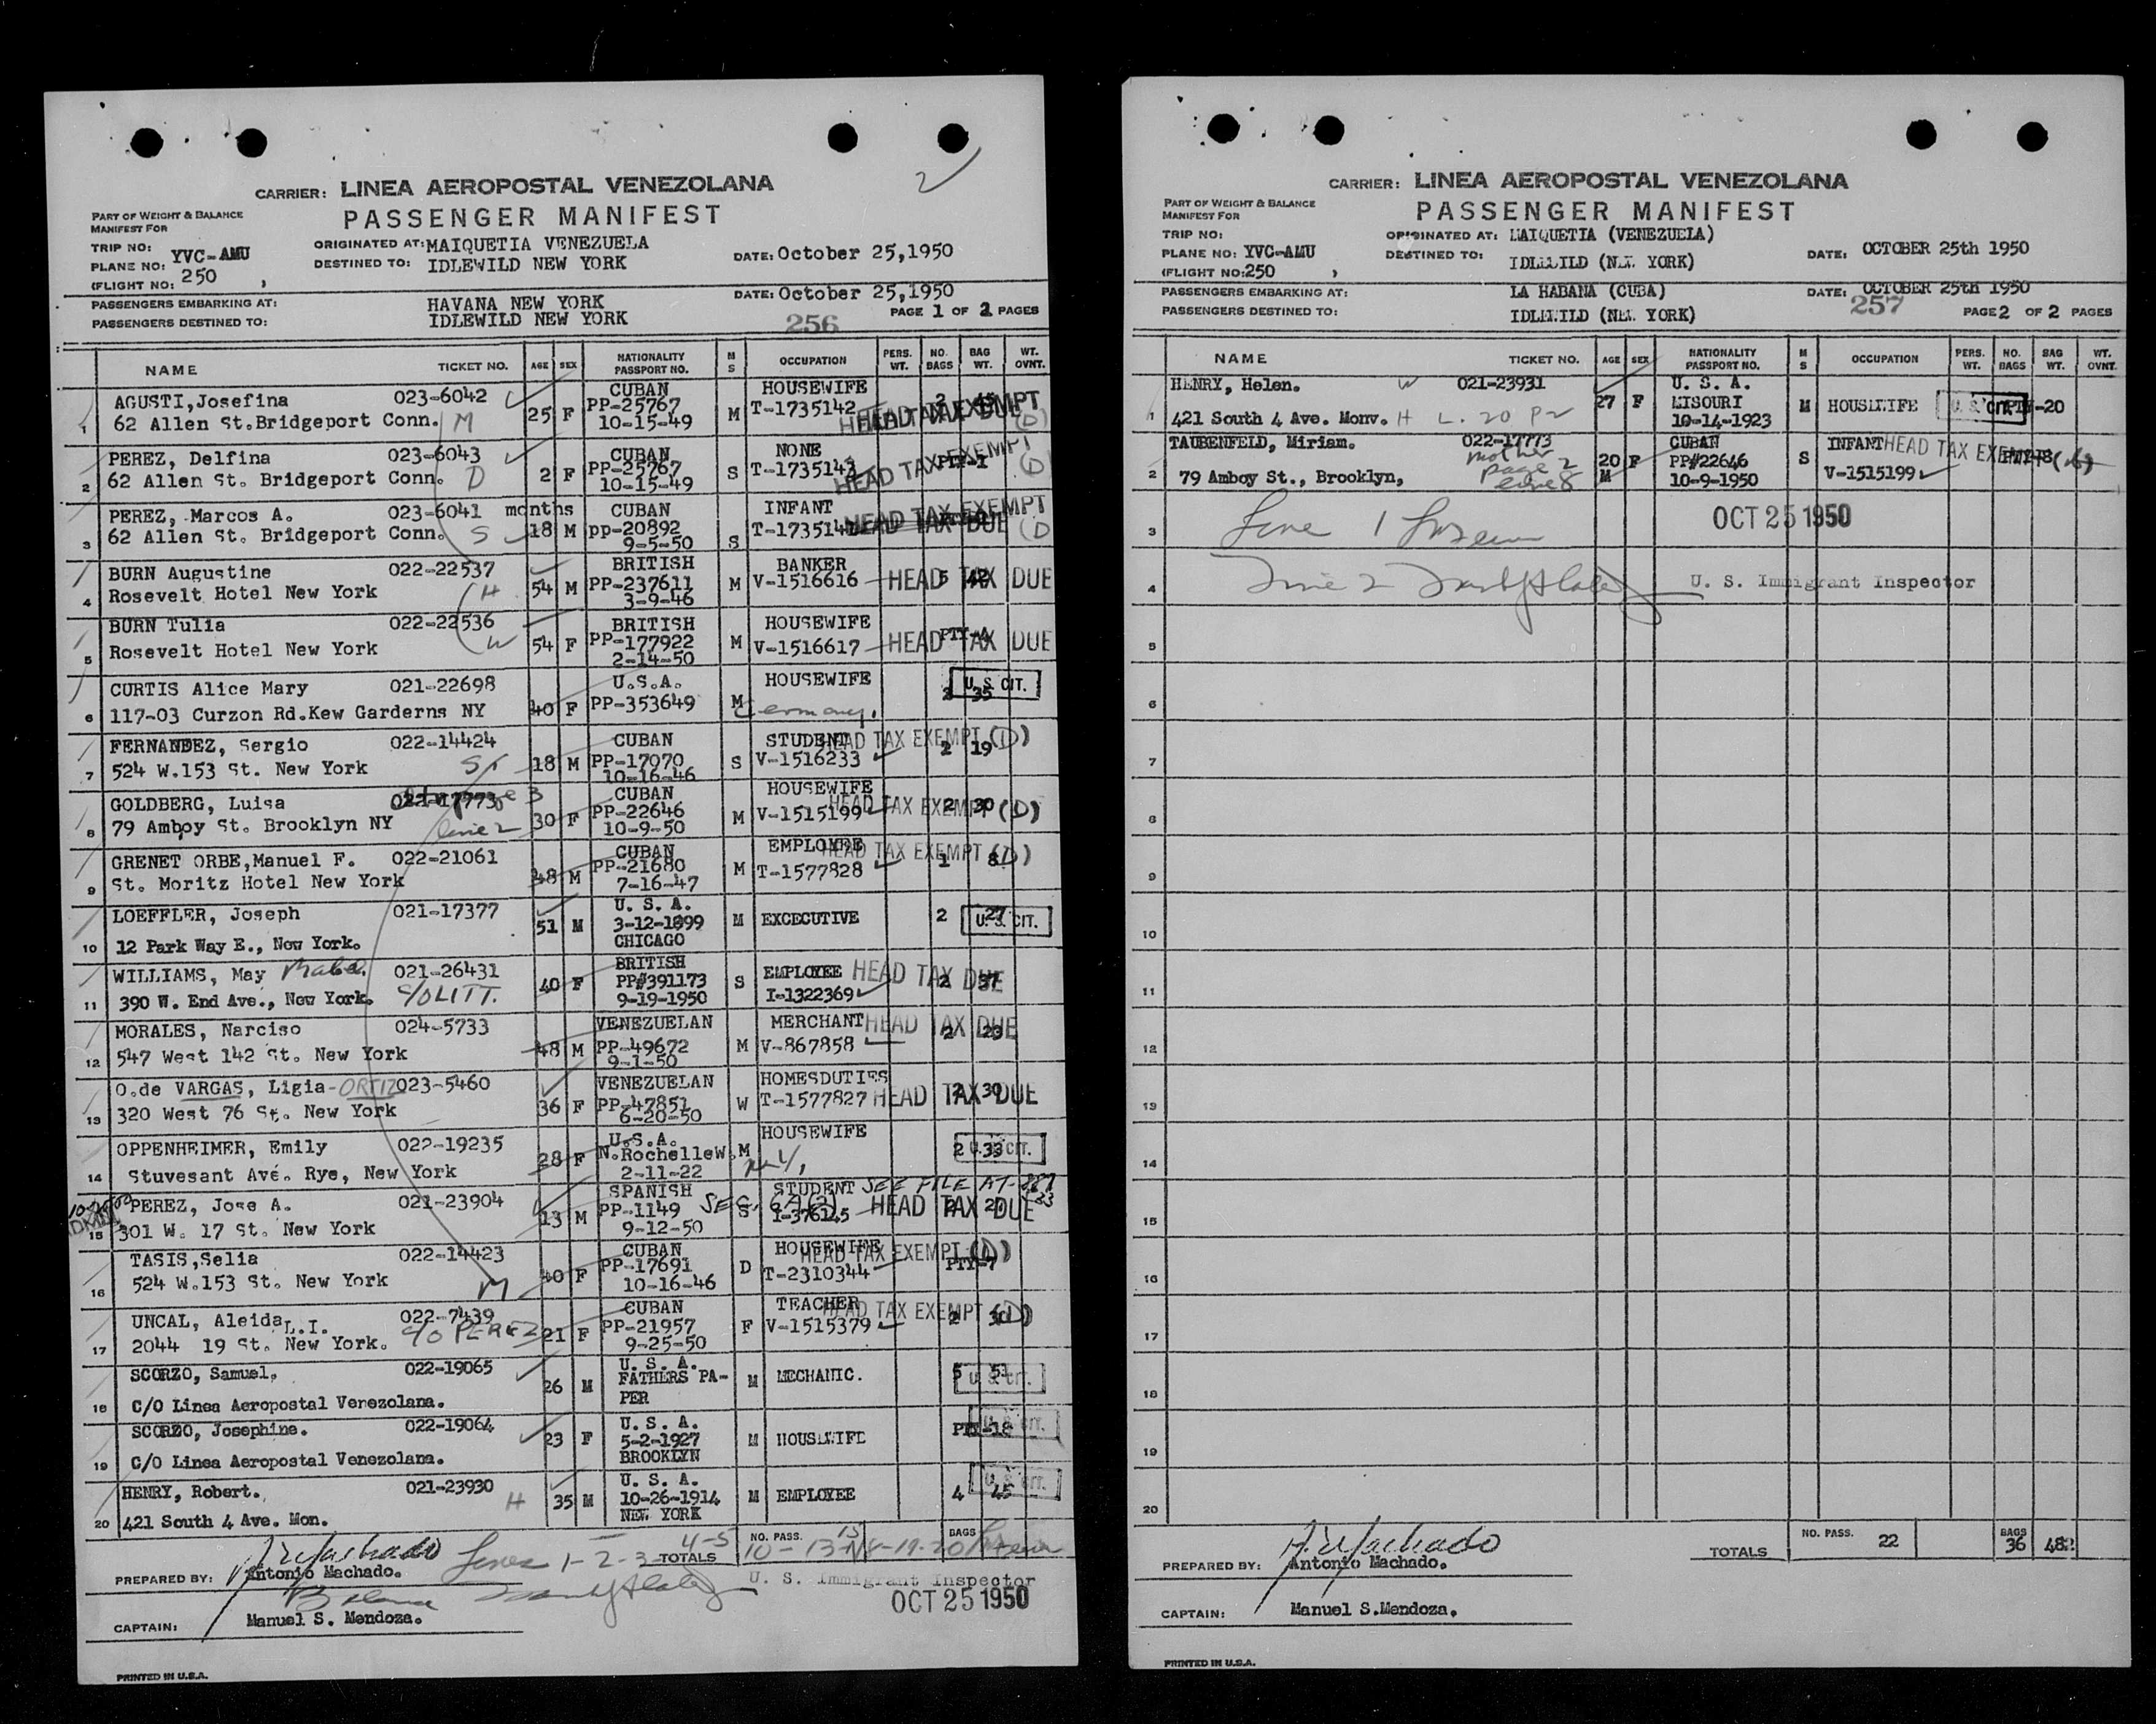 2
CARRIER: LINEA AEROPOSTAL VENEZOLANA
PASSENGER MANIFEST
PART OF WEIGHT & BALANCE
MANIFEST FOR
TRIP NO:
PLANE NO: YVC-AMU
(FLIGHT NO: 250 )
ORIGINATED AT: MAIQUETIA VENEZUELA
DESTINED TO: IDLEWILD NEW YORK
DATE: October 25,1950
PASSENGERS EMBARKING AT: HAVANA NEW YORK
DATE: October 25,1950
PASSENGERS DESTINED TO: IDLEWILD NEW YORK
256
PAGE 1 OF 2 PAGES
NAME TICKET NO. AGE SEX NATIONALITY PASSPORT NO. M S OCCUPATION PERS. WT. NO. BAGS BAG WT. WT. OVNT.
1 AGUSTI,Josefina 023-6042 25 F CUBAN M HOUSEWIFE 2
62 Allen St.Bridgeport Conn. M PP-25767 T-1735142 HEAD TAX EXEMPT
10-15-49 HEAD TAX DUE (D)
2 PEREZ, Delfina 023-6043 2 F CUBAN S NONE
62 Allen St. Bridgeport Conn. D PP-25767 T-1735143 HEAD TAX EXEMPT PTY-1 (D)
10-15-49
3 PEREZ, Marcos A. 023-6041 months 18 M CUBAN S INFANT
62 Allen St. Bridgeport Conn. S pp-20892 HEAD TAX EXEMPT
9-5-50 HEAD TAX DUE (D
4 BURN Augustine 022-22537 54 M BRITISH M BANKER
Rosevelt Hotel New York H PP-237611 V-1516616 HEAD TAX DUE 5 42
3-9-46
5 BURN Tulia 022-22536 54 F BRITISH M HOUSEWIFE
Rosevelt Hotel New York W PP-177922 V-1516617 HEAD TAX DUE PTY-4
2-14-50
6 CURTIS Alice Mary 021-22698 40 F U.S.A. M HOUSEWIFE
117-03 Curzon Rd.Kew Garderns NY PP-353649 Germany. 35 U.S. CIT.
7 FERNANDEZ, Sergio 022-14424 18 M CUBAN S STUDENT HEAD TAX EXEMPT (D)
524 W.153 St. New York PP-17070 V-1516233 2 19
10-16-46
8 GOLDBERG, Luisa 022-17773 3 30 F CUBAN M HOUSEWIFE
79 Amboy St. Brooklyn NY line 2 PP-22646 V-1515199 HEAD TAX EXEMPT (D) 2 30
10-9-50
9 GRENET ORBE,Manuel F. 022-21061 48 M CUBAN M EMPLOYEE HEAD TAX EXEMPT (D)
St. Moritz Hotel New York PP-21680 T-1577828 1 8
7-16-47
10 LOEFFLER, Joseph 021-17377 51 M U. S. A. M EXCECUTIVE 2 27 U.S. CIT.
12 Park Way E., New York. 3-12-1899
CHICAGO
11 WILLIAMS, May 021-26431 40 F BRITISH S EMPLOYEE HEAD TAX DUE
390 W. End Ave., New York. C/O LITT. PP#391173 I-1322369 2 37
9-19-1950
12 MORALES, Narciso 024-5733 48 M VENEZUELAN M MERCHANT HEAD TAX DUE
547 West 142 St. New York PP-49672 V-867858 2 23
9-1-50
13 O.de VARGAS, Ligia-ORTIZ 023-5460 36 F VENEZUELAN W HOMESDUTIES
320 West 76 St. New York PP-47851 T-1577827 HEAD TAX DUE 2 30
6-20-50
14 OPPENHEIMER, Emily 022-19235 28 F U.S.A. M HOUSEWIFE
Stuvesant Avé. Rye, New York N.RochelleW. N.Y. 2 33 U.S. CIT.
2-11-22
15 PEREZ, Jose A. 021-23904 13 M SPANISH S STUDENT SEE FILE
301 W. 17 St. New York PP-1149 SEC. I-376145 HEAD TAX DUE 2
9-12-50
16 TASIS,Selia 022-14423 40 F CUBAN D HOUSEWIFE HEAD TAX EXEMPT (D)
524 W.153 St. New York M PP-17691 T-2310344 PTY-7
10-16-46
17 UNCAL, Aleida L.I. 022-7439 21 F CUBAN F TEACHER HEAD TAX EXEMPT (D)
2044 19 St. New York. C/O PEREZ PP-21957 V-1515379 2 30
9-25-50
18 SCORZO, Samuel. 022-19065 26 M U. S. A. M MECHANIC. 5 51 U.S. CIT.
C/O Linea Aeropostal Venezolana. FATHERS PA-
PER
19 SCORZO, Josephine. 022-19064 23 F U. S. A. M HOUSEWIFE PTY-18 U.S. CIT.
C/O Linea Aeropostal Venezolana. 5-2-1927
BROOKLYN
20 HENRY, Robert. 021-23930 H 35 M U. S. A. M EMPLOYEE 4 45 U.S. CIT.
421 South 4 Ave. Mon. 10-26-1914
NEW YORK
Lines 1-2-3- 4-5 TOTALS NO. PASS. BAGS
PREPARED BY: Antonio Machado.
U. S. Immigrant Inspector
OCT 25 1950
CAPTAIN: Manuel S. Mendoza.
PRINTED IN U.S.A.
CARRIER: LINEA AEROPOSTAL VENEZOLANA
PASSENGER MANIFEST
PART OF WEIGHT & BALANCE
MANIFEST FOR
TRIP NO:
PLANE NO: YVC-AMU
(FLIGHT NO:250 )
ORIGINATED AT: MAIQUETIA (VENEZUELA)
DESTINED TO: IDLEWILD (NEW YORK)
DATE: OCTOBER 25th 1950
PASSENGERS EMBARKING AT: LA HABANA (CUBA)
DATE: OCTOBER 25th 1950
PASSENGERS DESTINED TO: IDLEWILD (NEW YORK)
257
PAGE 2 OF 2 PAGES
NAME TICKET NO. AGE SEX NATIONALITY PASSPORT NO. M S OCCUPATION PERS. WT. NO. BAGS BAG WT. WT. OVNT.
1 HENRY, Helen. W 021-23931 27 F U. S. A. M HOUSEWIFE U.S. CIT. PTY-20
421 South 4 Ave. Monv. H L. 20 P2 MISOURI
10-14-1923
2 TAUBENFELD, Miriam. 022-17773 20 F CUBAN S INFANT HEAD TAX EXEMPT
79 Amboy St., Brooklyn, mother page 2 line 8 M PP#22646 V-1515199
10-9-1950
3 Line 1
OCT 25 1950
4 Line 2
U. S. Immigrant Inspector
5
6
7
8
9
10
11
12
13
14
15
16
17
18
19
20
TOTALS NO. PASS. 22 BAGS 36 482
PREPARED BY: Antonio Machado.
CAPTAIN: Manuel S.Mendoza.
PRINTED IN U.S.A.